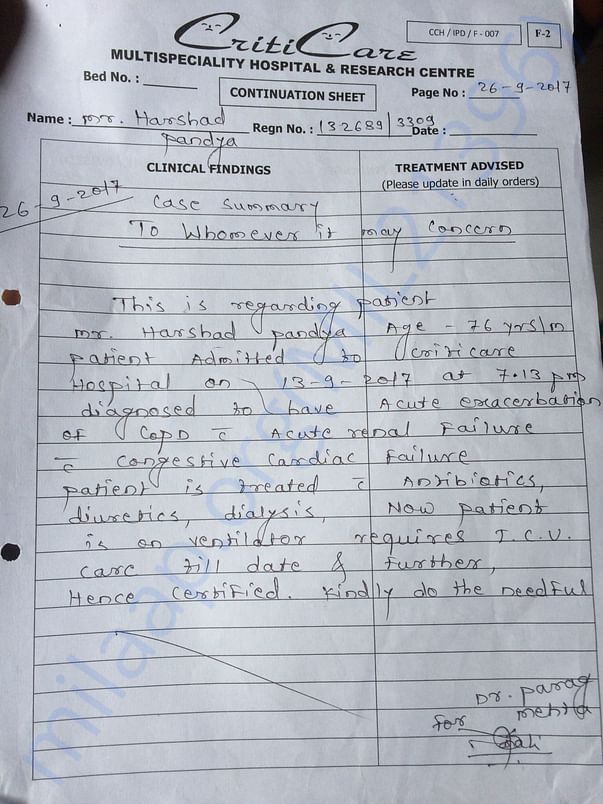 CritiCare
CCH / IPD / F - 007
F-2
MULTISPECIALITY HOSPITAL & RESEARCH CENTRE
Bed No. :
CONTINUATION SHEET
Page No : 26-9-2017
Name : mr. Harshad
Pandya
Regn No. : 132689/3309
Date :
CLINICAL FINDINGS
TREATMENT ADVISED
(Please update in daily orders)
26-9-2017
Case Summary
To Whomever it may Concern
This is regarding patient
mr. Harshad pandya Age - 76 yrs/m
patient Admitted to criticare
Hospital on 13-9-2017 at 7.13 pm
diagnosed to have Acute exacerbation
of COPD c̄ Acute renal Failure
c̄ congestive cardiac failure
patient is treated c̄ Antibiotics,
diuretics, dialysis, Now patient
is on ventilator requires I.C.U.
care till date & further,
Hence Certified. Kindly do the needful
Dr. Parag
mehta
for
milaap.org/MIL213967